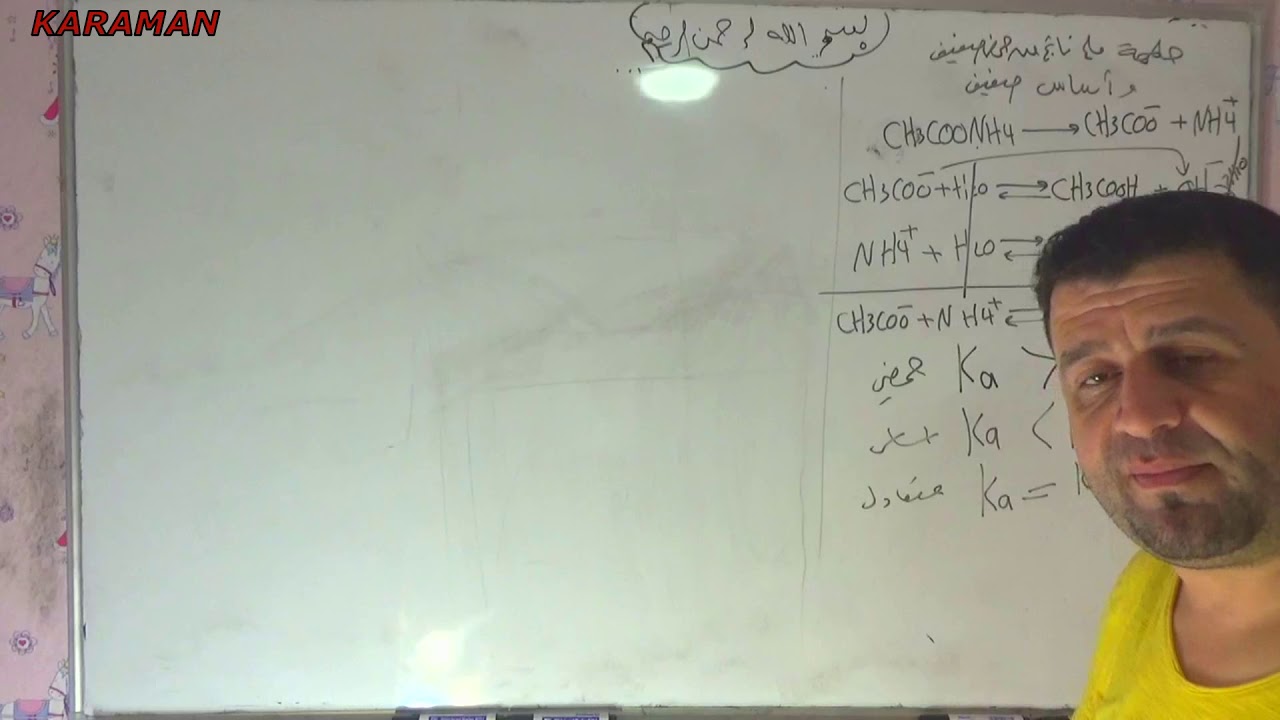 KARAMAN
بسم الله الرحمن الرحيم
حلمهة ملح ناتج عن حمض ضعيف
وأساس ضعيف
CH3COONH4 → CH3COO⁻ + NH4⁺
CH3COO⁻ + H2O ⇌ CH3COOH + OH⁻
NH4⁺ + H2O ⇌
CH3COO⁻ + NH4⁺ ⇌
حمضي Ka >
Ka <
معتدل Ka =